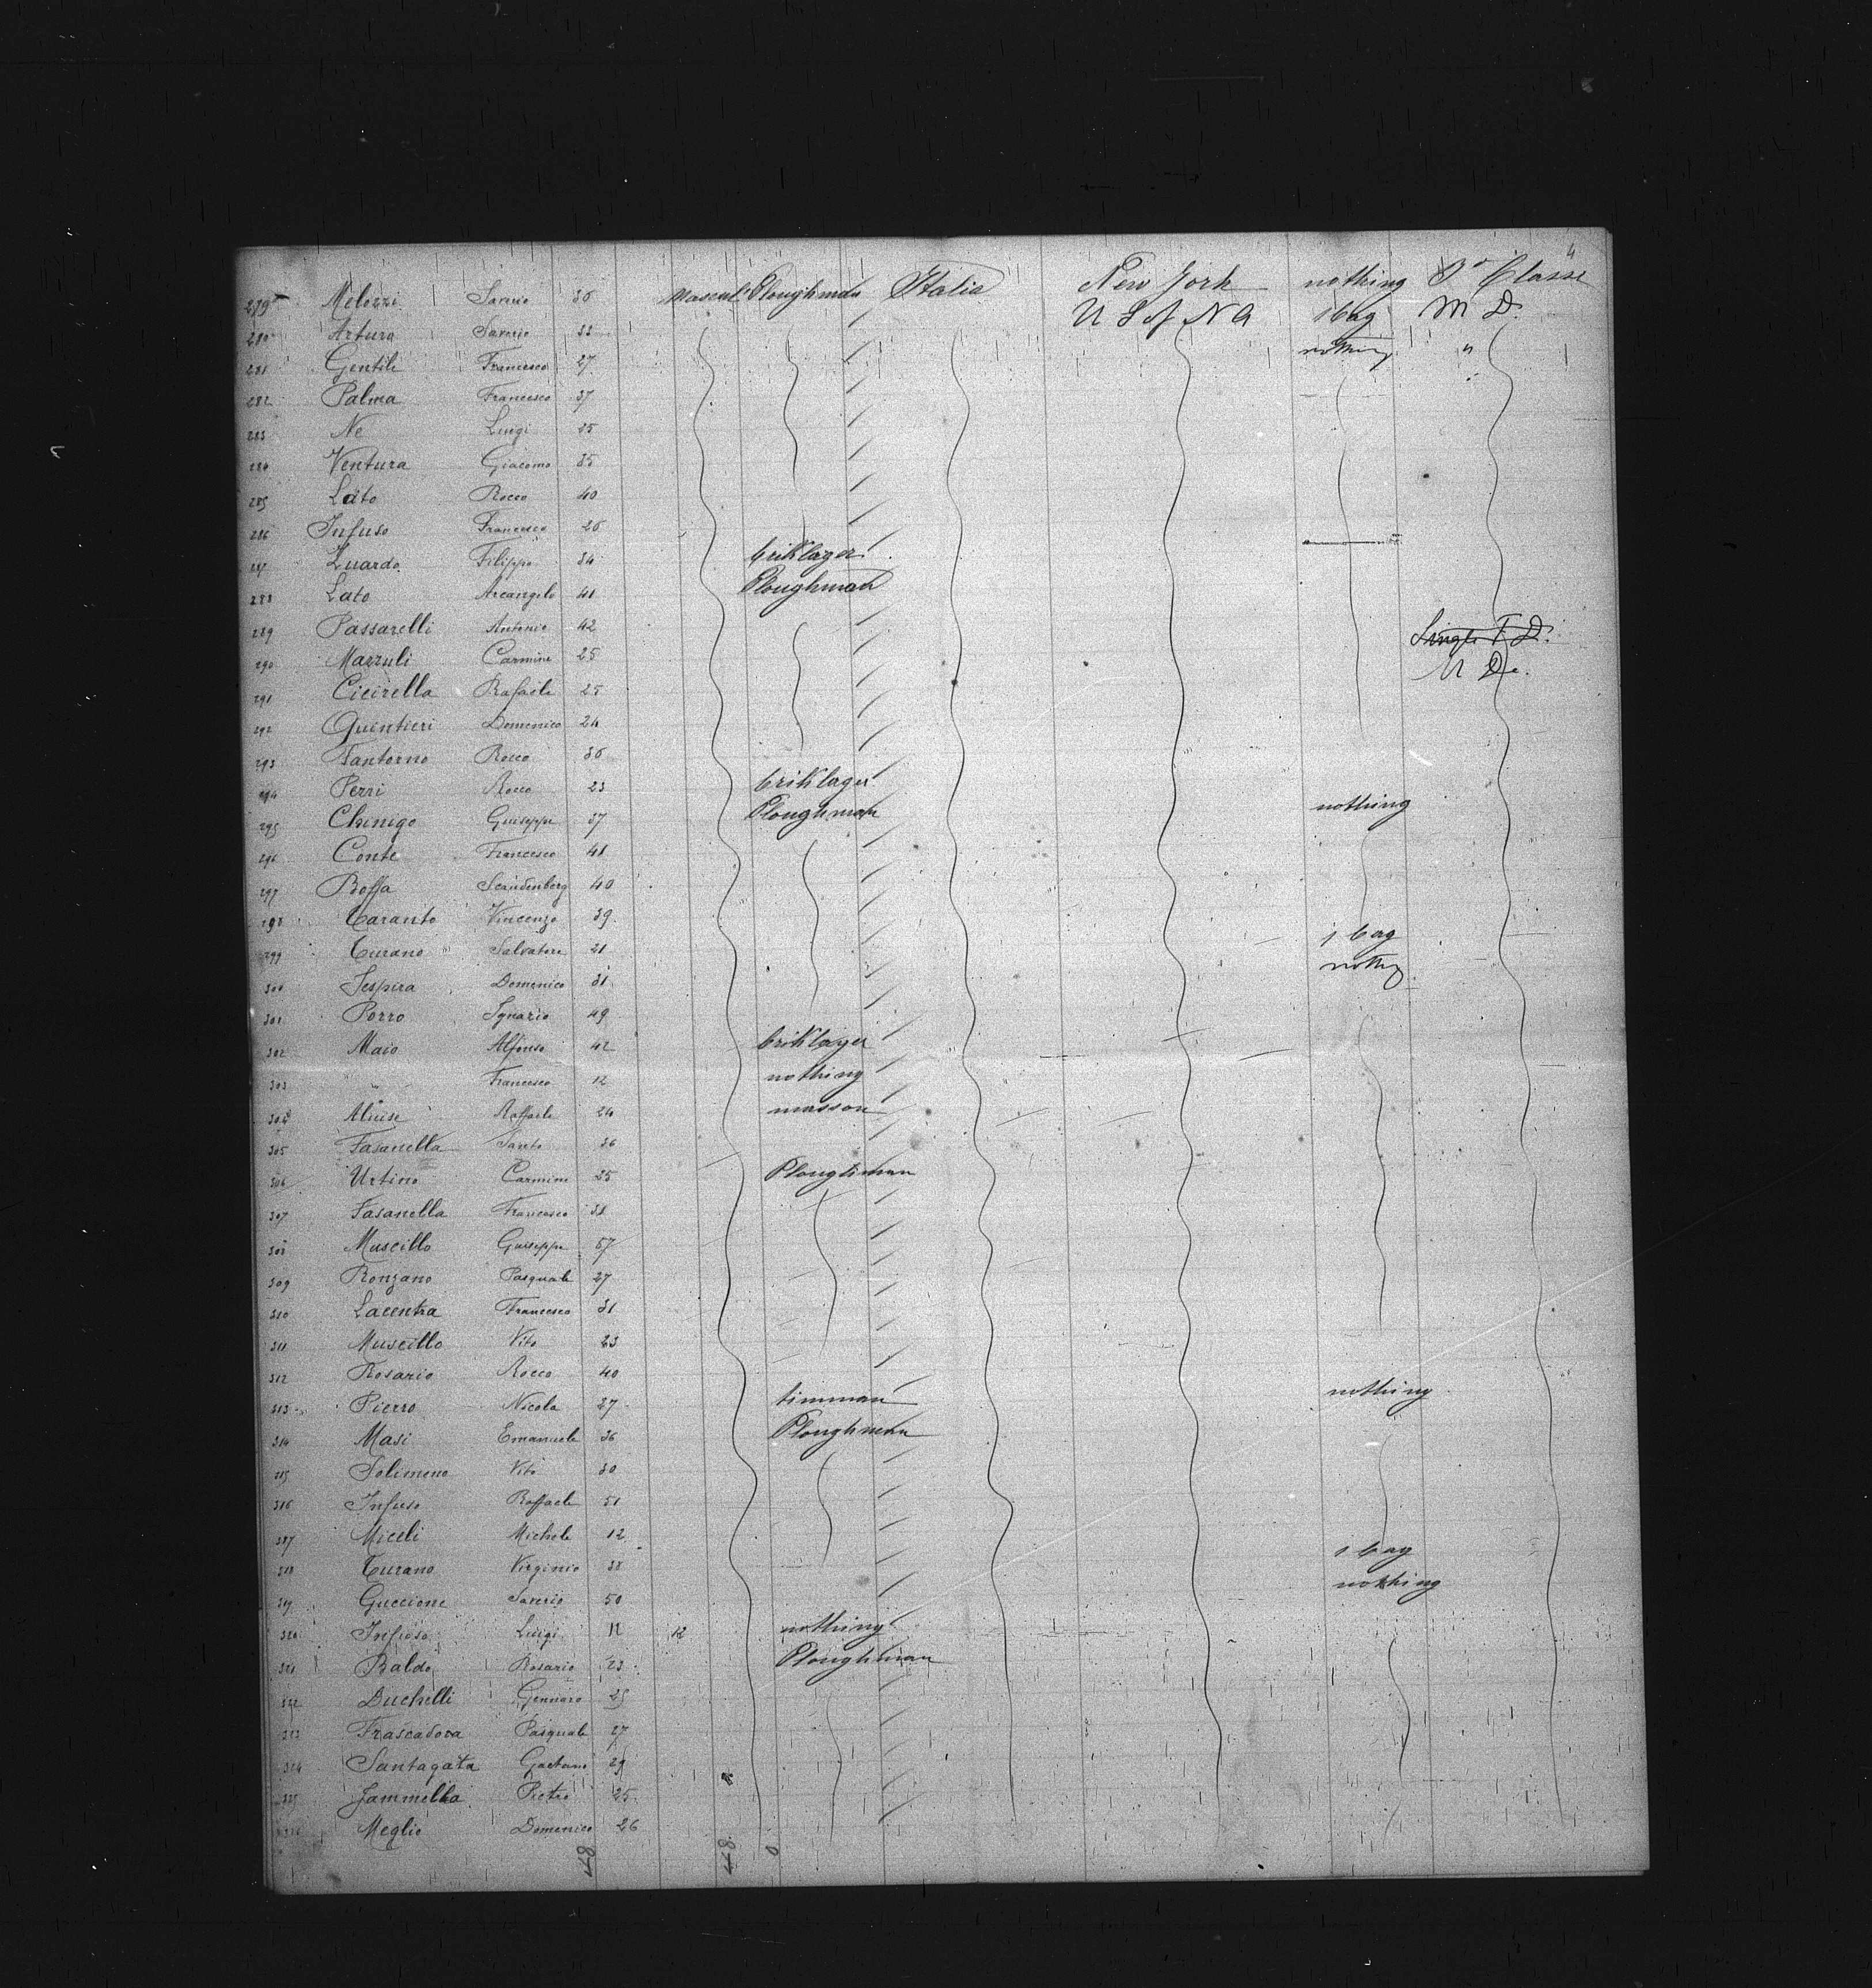 4
279 Melozzi Saverio 36 Mascul. Ploughman Italia New York nothing 3ª Classe
280 Arturo Saverio 33 U S of N A 1 bag M D.
281 Gentile Francesco 27 nothing "
282 Palma Francesco 37
283 Ne Luigi 25
284 Ventura Giacomo 35
285 Lato Rocco 40
286 Infuso Francesco 26
287 Zuardo Filippo 34 briklager
288 Lato Arcangelo 41 Ploughman
289 Passarelli Antonio 42 Single F. D.
290 Mazzuli Carmine 25 M D.
291 Cicirella Rafaele 25
292 Quintieri Domenico 24
293 Santorno Rocco 36
294 Perri Rocco 23 briklager
295 Chinigo Giuseppe 37 Ploughman nothing
296 Conte Francesco 41
297 Boffa Scandenberg 40
298 Caranto Vincenzo 39
299 Turano Salvatore 21 1 bag
300 Sespira Domenico 31 nothing
301 Porro Ignazio 49
302 Maio Alfonso 42 briklager
303 " Francesco 12 nothing
304 Aluise Raffaele 24 masson
305 Fasanella Santo 36
306 Urtino Carmine 25 Ploughman
307 Fasanella Francesco 38
308 Muscillo Giuseppe 57
309 Ronzano Pasquale 27
310 Lacentra Francesco 31
311 Muscillo Vito 23
312 Rosario Rocco 40
313 Pierro Nicola 27 timman nothing
314 Masi Emanuele 36 Ploughman
315 Solimeno Vito 30
316 Infuso Raffaele 51
317 Miceli Michele 12
318 Turano Virginio 38 1 bag
319 Guccione Saverio 50 nothing
320 Infuso Luigi 11 12 nothing
321 Baldo Rosario 23 Ploughman
322 Duchelli Gennaro 25
323 Frascadora Pasquale 27
324 Santagata Gaetano 29
325 Jammella Pietro 25
Meglio Domenico 26